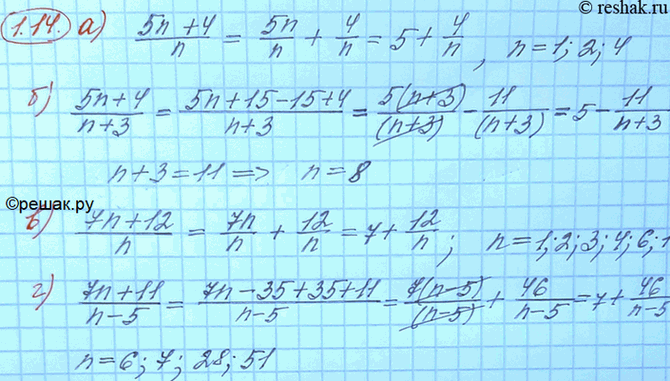 © reshak.ru
1.14. а) (5n+4)/n = 5n/n + 4/n = 5 + 4/n, n=1; 2; 4
б) (5n+4)/(n+3) = (5n+15-15+4)/(n+3) = 5(n+3)/(n+3) - 11/(n+3) = 5 - 11/(n+3)
n+3=11 => n=8
©решак.ру
в) (7n+12)/n = 7n/n + 12/n = 7 + 12/n; n=1; 2; 3; 4; 6; 1
г) (7n+11)/(n-5) = (7n-35+35+11)/(n-5) = 7(n-5)/(n-5) + 46/(n-5) = 7 + 46/(n-5)
n=6; 7; 28; 51